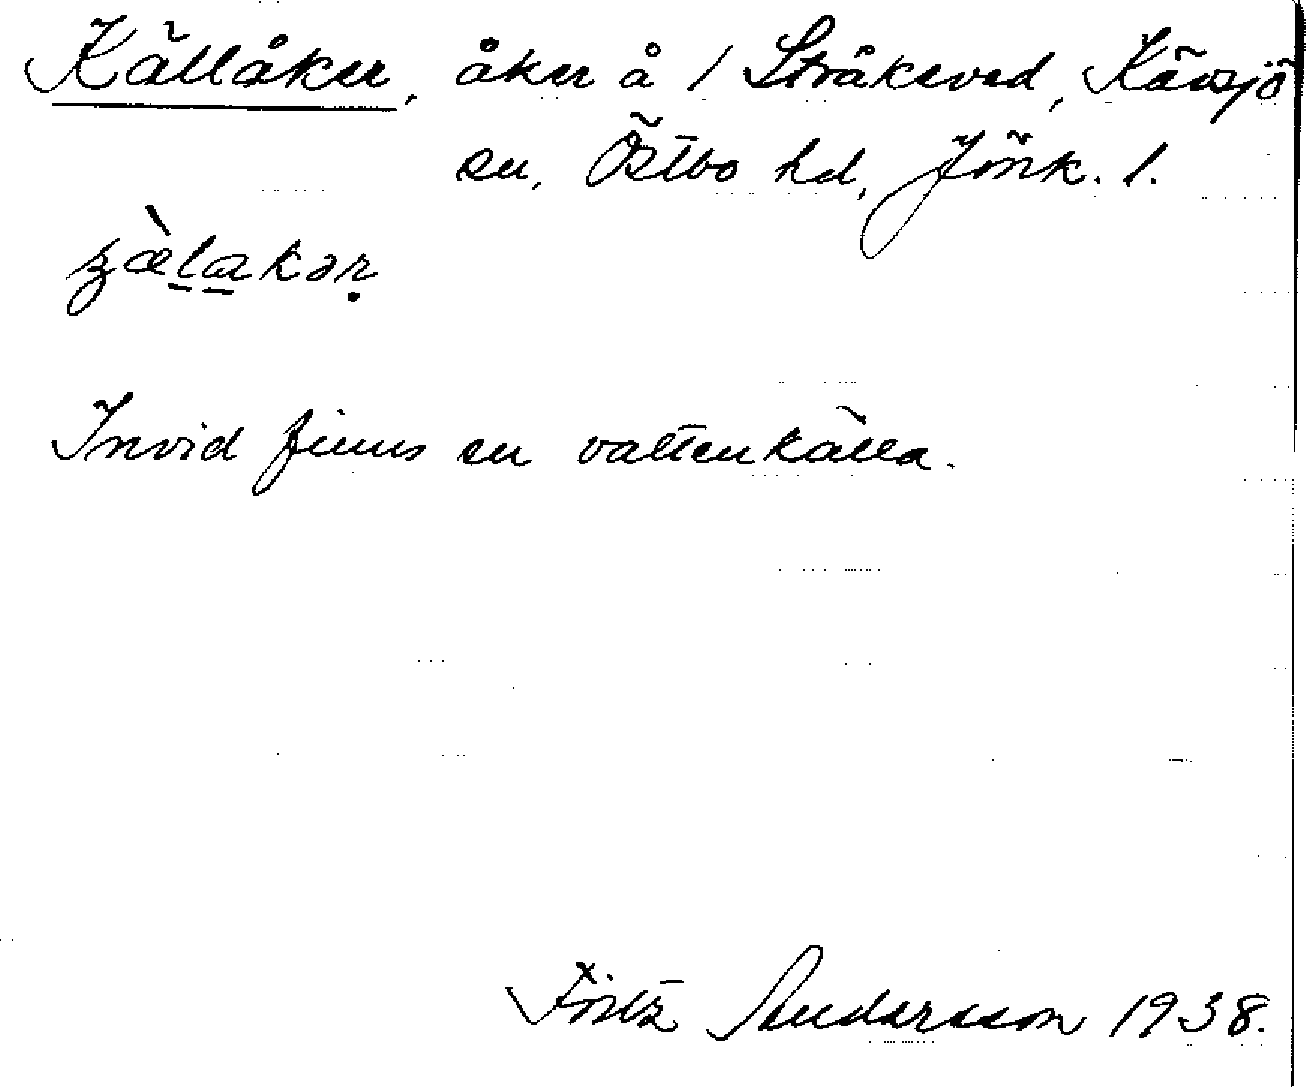 Källåker, åker å 1 Stråkeved, Kävsjö
sn, Östbo hd, Jönk. l.
Invid finns en vattenkälla.
Andersson 1938.